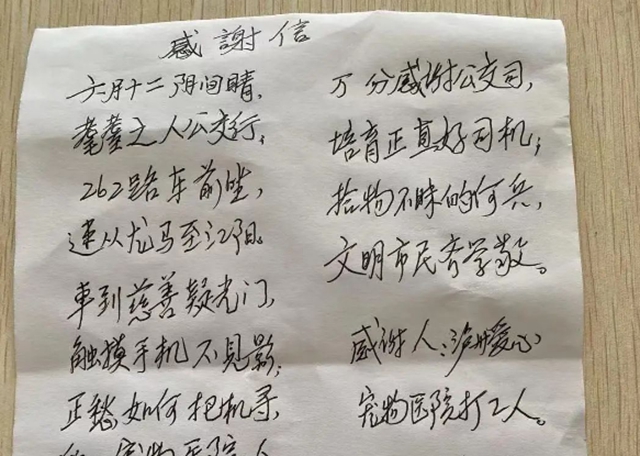 感謝信
六月十二阴间晴，
耄耋之人公交行，
262路车前坐，
速从龙马至江阳。
車到慈善疑光门，
触摸手机不見影；
正愁如何把机寻，
宠物医院人
万分感谢公交司，
培育正直好司机；
拾物不昧的何兵，
文明市民齐学敬。
感谢人：泸州爱心
宠物医院打工人。